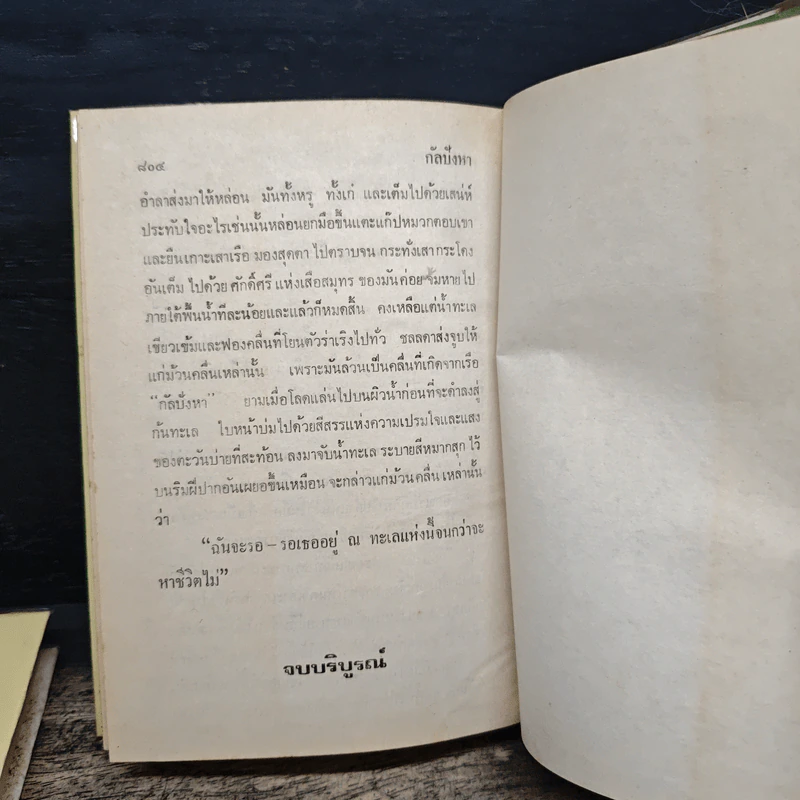 ๘๐๔
กัลปังหา
อำลาส่งมาให้หล่อน มันทั้งหรู ทั้งเก่ และเต็มไปด้วยเสน่ห์
ประทับใจอะไรเช่นนั้นหล่อนยกมือขึ้นแตะแก๊ปหมวกตอบเขา
และยืนเกาะเสาเรือ มองสุดตา ไปตราบจน กระทั่งเสากระโดง
อันเต็ม ไปด้วย ศักดิ์ศรี แห่งเสือสมุทร ของมันค่อย จมหายไป
ภายใต้พื้นน้ำทีละน้อยและแล้วก็หมดสิ้น คงเหลือแต่น้ำทะเล
เขียวเข้มและฟองคลื่นที่โยนตัวร่าเริงไปทั่ว ชลลดาส่งจูบให้
แก่ม้วนคลื่นเหล่านั้น เพราะมันล้วนเป็นคลื่นที่เกิดจากเรือ
“กัลปังหา” ยามเมื่อโลดแล่นไปบนผิวน้ำก่อนที่จะดำลงสู่
ก้นทะเล ใบหน้าบ่มไปด้วยสีสรรแห่งความเปรมใจและแสง
ของตะวันบ่ายที่สะท้อน ลงมาจับน้ำทะเล ระบายสีหมากสุก ไว้
บนริมฝีปากอันเผยอขึ้นเหมือน จะกล่าวแก่ม้วนคลื่น เหล่านั้น
ว่า
“ฉันจะรอ – รอเธออยู่ ณ ทะเลแห่งนี้จนกว่าจะ
หาชีวิตไม่”
จบบริบูรณ์